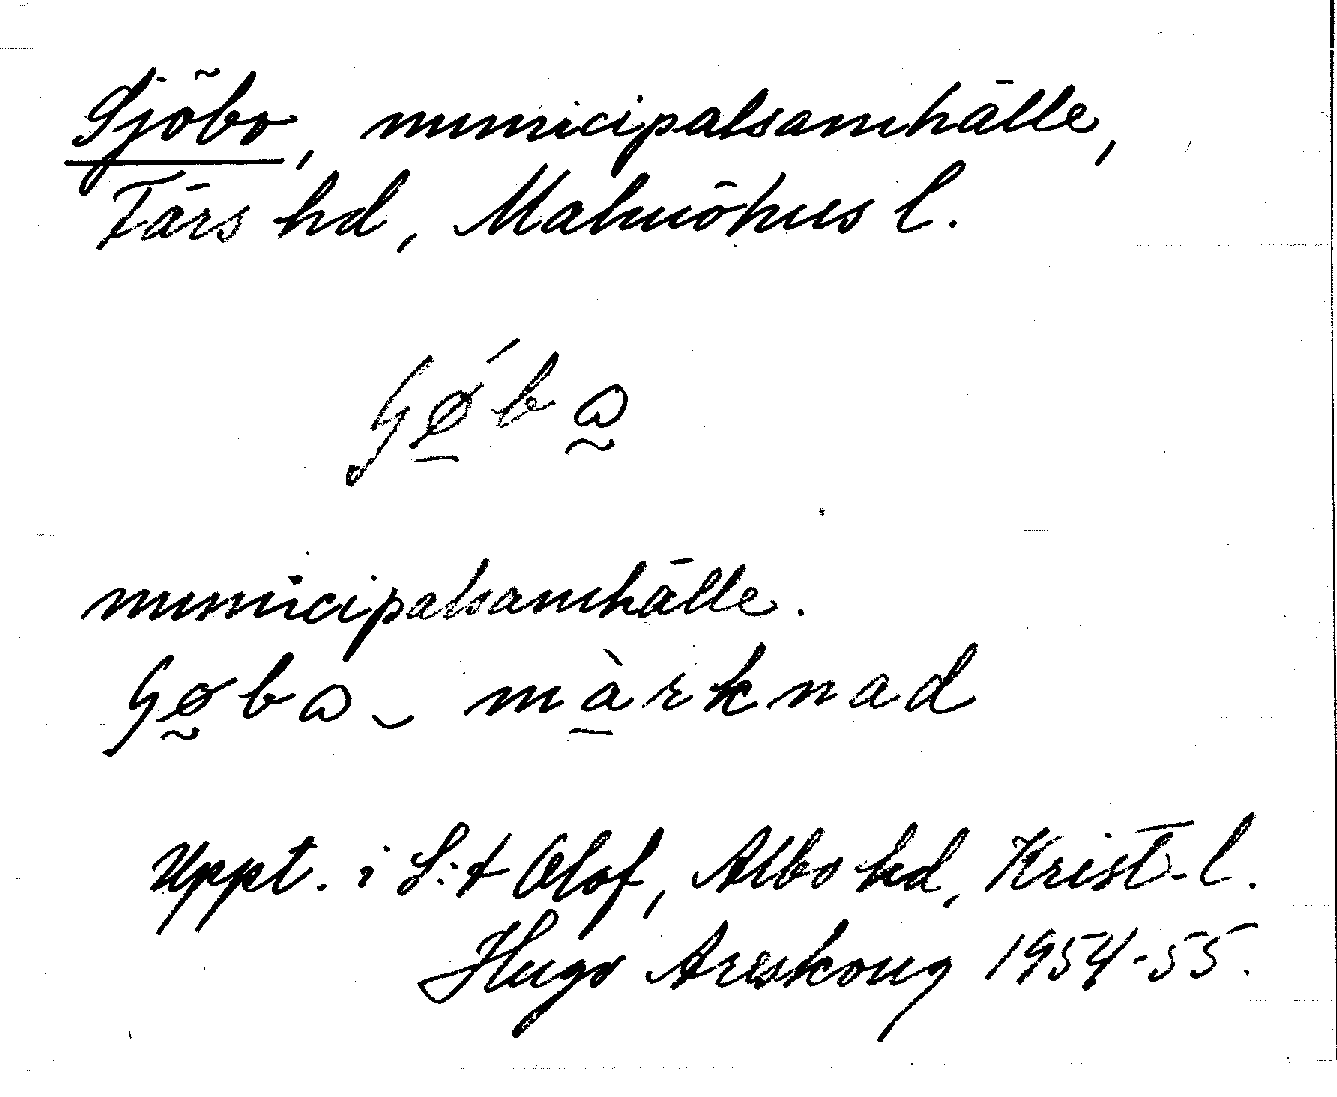 Sjöbo, municipalsamhälle,
Färs hd, Malmöhus l.
municipalsamhälle.
Uppt. i S:t Olof, Albo hd, Krist. l.
Hugo Areskoug 1954-55.